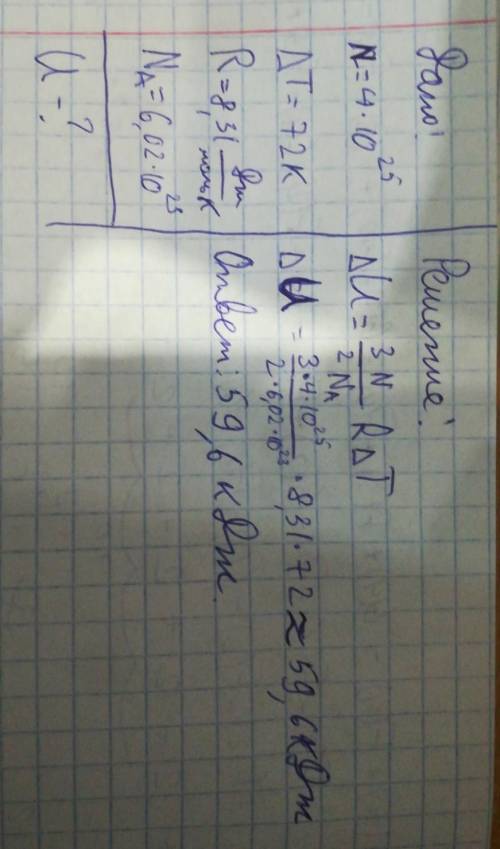 Дано:
N=4·10²⁵
ΔT=72К
R=8,31 Дж/моль·К
N_A=6,02·10²³
U-?
Решение:
ΔU = 3N/2N_A RΔT
ΔU = 3·4·10²⁵/2·6,02·10²³ ·8,31·72≈59,6кДж
Ответ: 59,6 кДж.